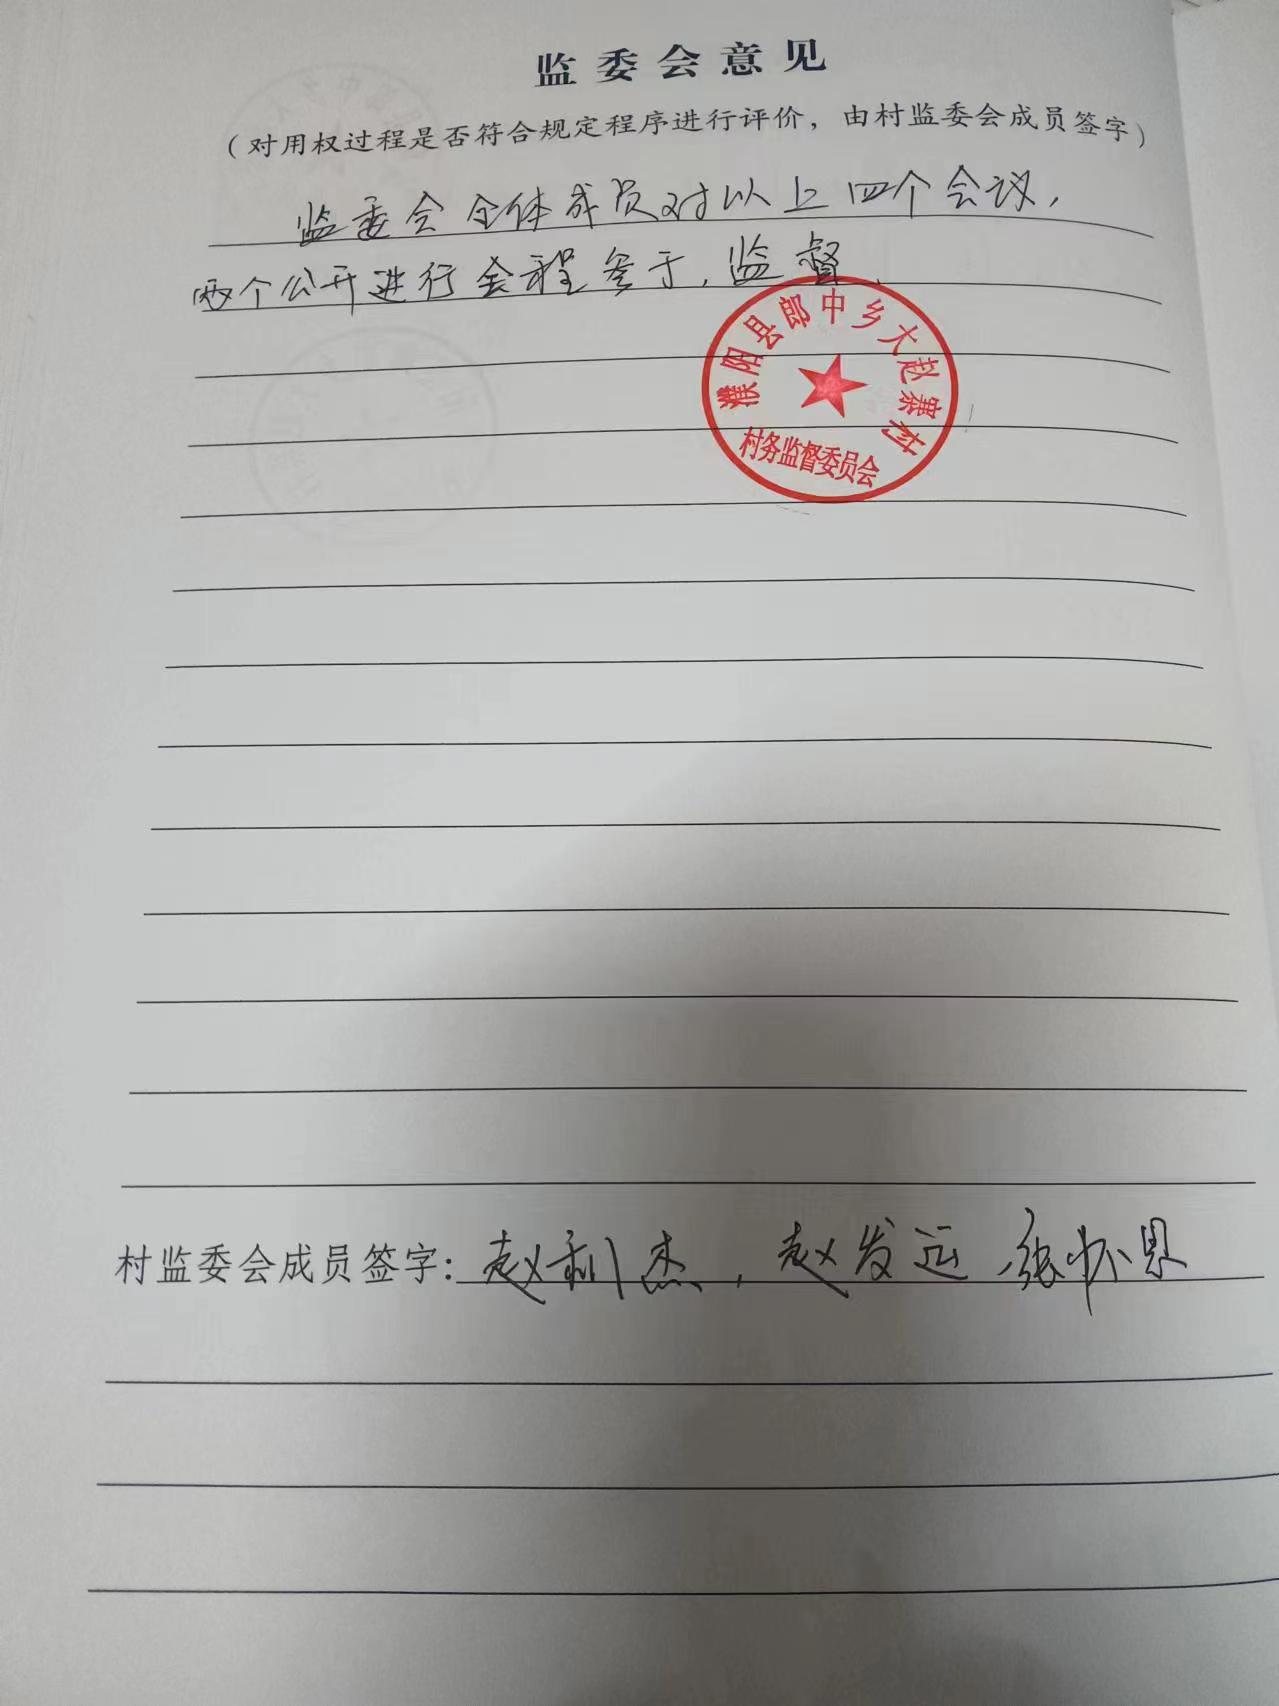 监委会意见
（对用权过程是否符合规定程序进行评价，由村监委会成员签字）
监委会全体成员对以上四个会议，
两个公开进行全程参于，监督
濮阳县郎中乡大赵寨村
村务监督委员会
村监委会成员签字：赵利杰，赵发远 张怀恩